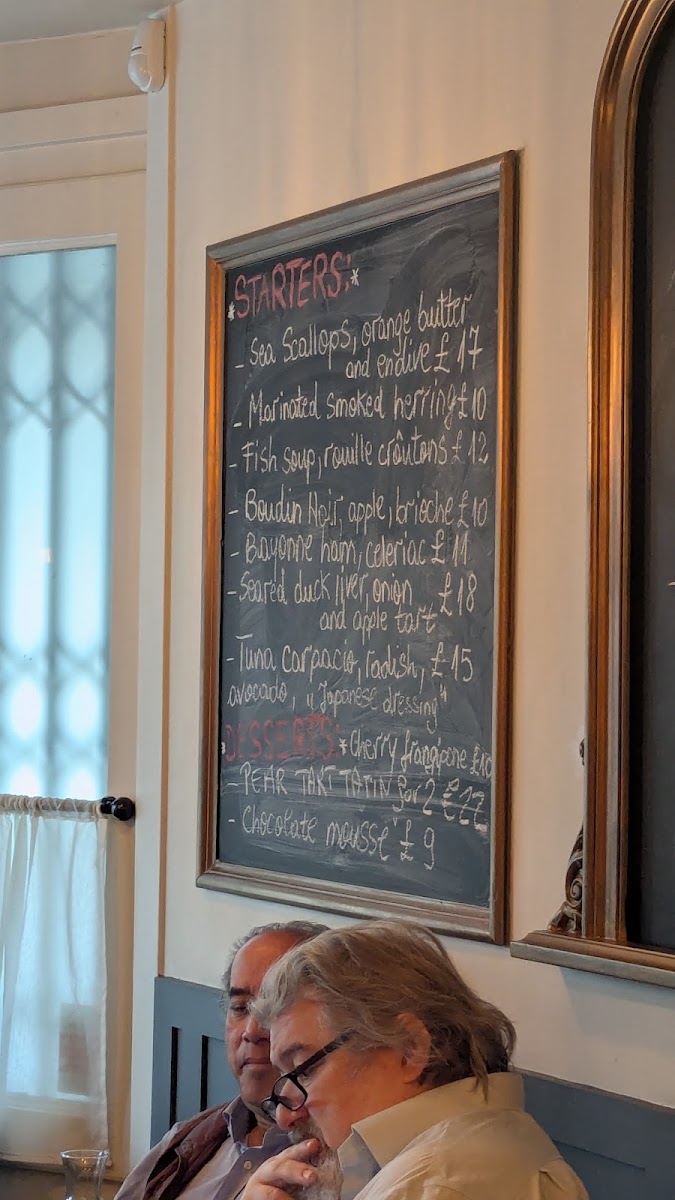 *STARTERS:*
- Sea Scallops, orange butter
and endive £17
- Marinated smoked herring £10
- Fish soup, rouille croûtons £12
- Boudin Noir, apple, brioche £10
- Bayonne ham, celeriac £11
- Seared duck liver, onion £18
and apple tart
- Tuna carpacio, radish, £15
avocado, „Japanese dressing"
*DESSERTS:* Cherry frangipane £10
- PEAR TART TATIN for 2 £22
- Chocolate mousse £9